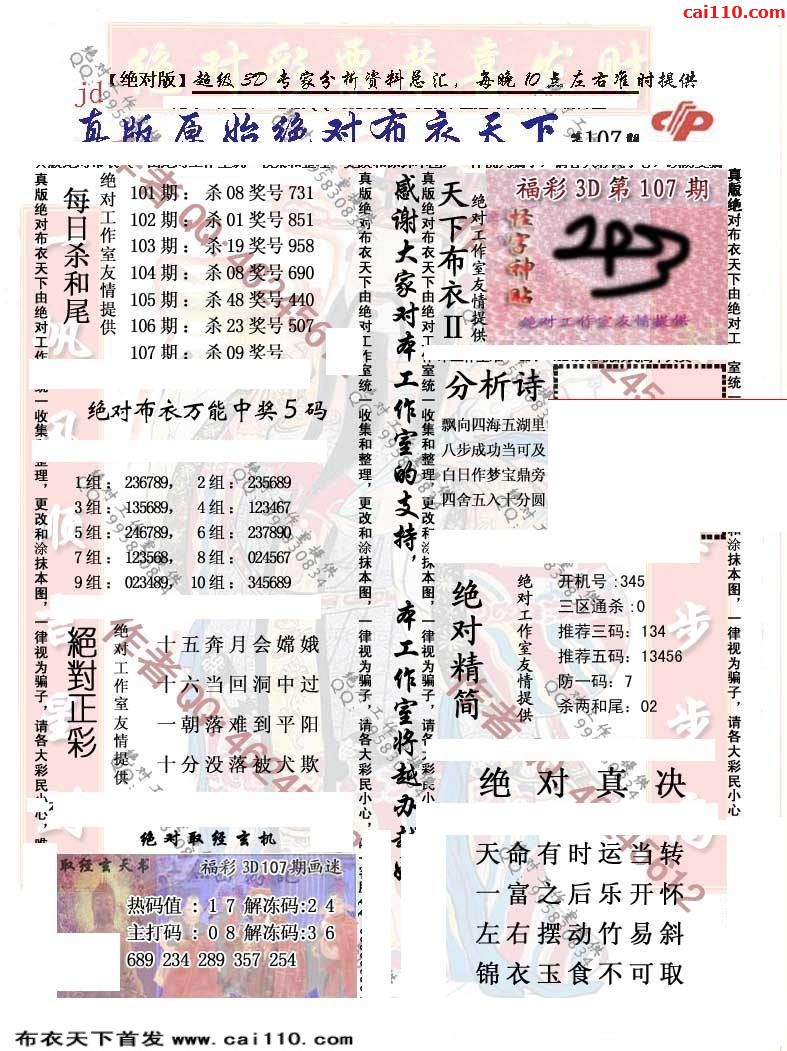 cai110.com
【绝对版】超级3D专家分析资料总汇，每晚10点左右准时提供
jd
真版原始绝对布衣天下 第107期
每日杀和尾
绝对工作室友情提供
101期：杀08奖号731
102期：杀01奖号851
103期：杀19奖号958
104期：杀08奖号690
105期：杀48奖号440
106期：杀23奖号507
107期：杀09奖号
绝对布衣万能中奖5码
1组：236789， 2组：235689
3组：135689， 4组：123467
5组：246789， 6组：237890
7组：123568， 8组：024567
9组：023489， 10组：345689
絕對正彩
绝对工作室友情提供
十五奔月会嫦娥
十六当回洞中过
一朝落难到平阳
十分没落被犬欺
绝对取经玄机
取经玄天书
福彩3D107期画迷
热码值：17解冻码:24
主打码：08解冻码:36
689 234 289 357 254
真版绝对布衣天下由绝对工作室统一收集和整理，更改和涂抹本图，一律视为骗子，请各大彩民小心，
感谢大家对本工作室的支持，本工作室将越办越好
真版绝对布衣天下由绝对工作室统一收集和整理，更改和涂抹本图，一律视为骗子，请各大彩民小
天下布衣II
绝对工作室友情提供
福彩3D第107期
怪字神贴
绝对工作室友情提供
分析诗
飘向四海五湖里
八步成功当可及
白日作梦宝鼎旁
四舍五入十分圆
绝对精简
绝对工作室友情提供
开机号:345
三区通杀:0
推荐三码：134
推荐五码：13456
防一码：7
杀两和尾：02
绝对真决
天命有时运当转
一富之后乐开怀
左右摆动竹易斜
锦衣玉食不可取
布衣天下首发 www.cai110.com